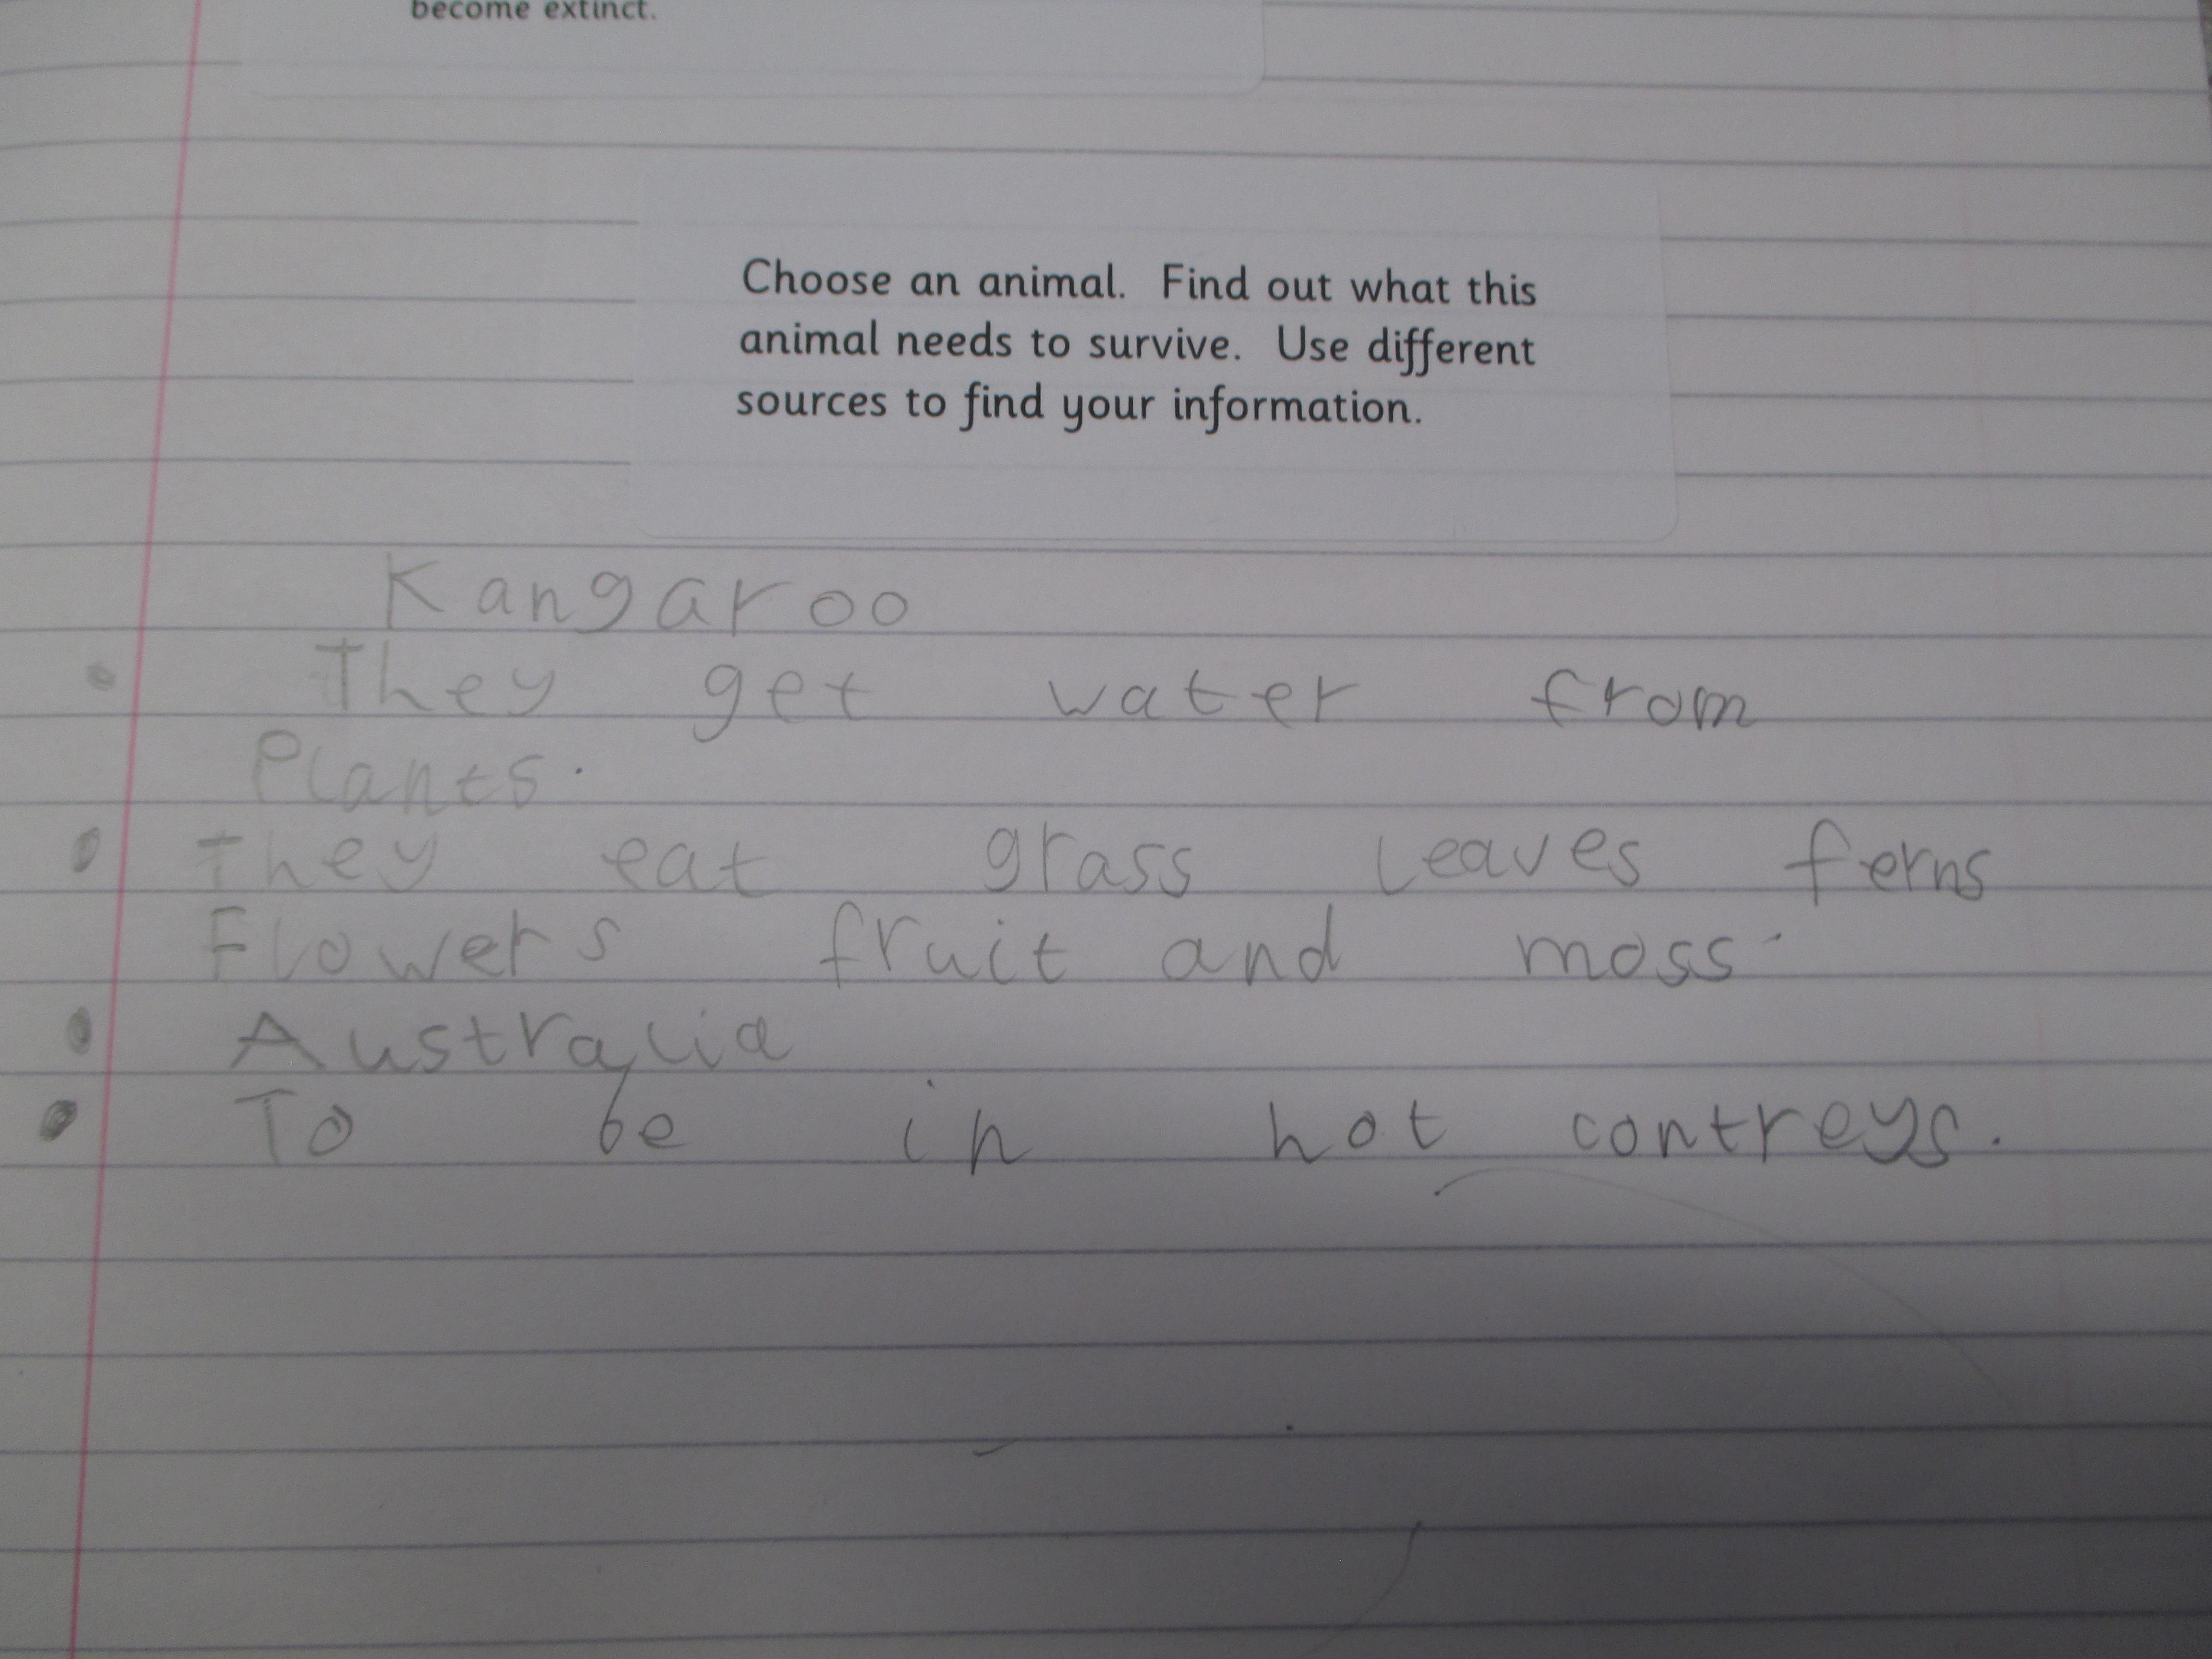 become extinct.
Choose an animal. Find out what this
animal needs to survive. Use different
sources to find your information.
Kangaroo
• They get water from
Plants.
• They eat grass leaves ferns
Flowers fruit and moss.
• Australia
• To be in hot contreys.